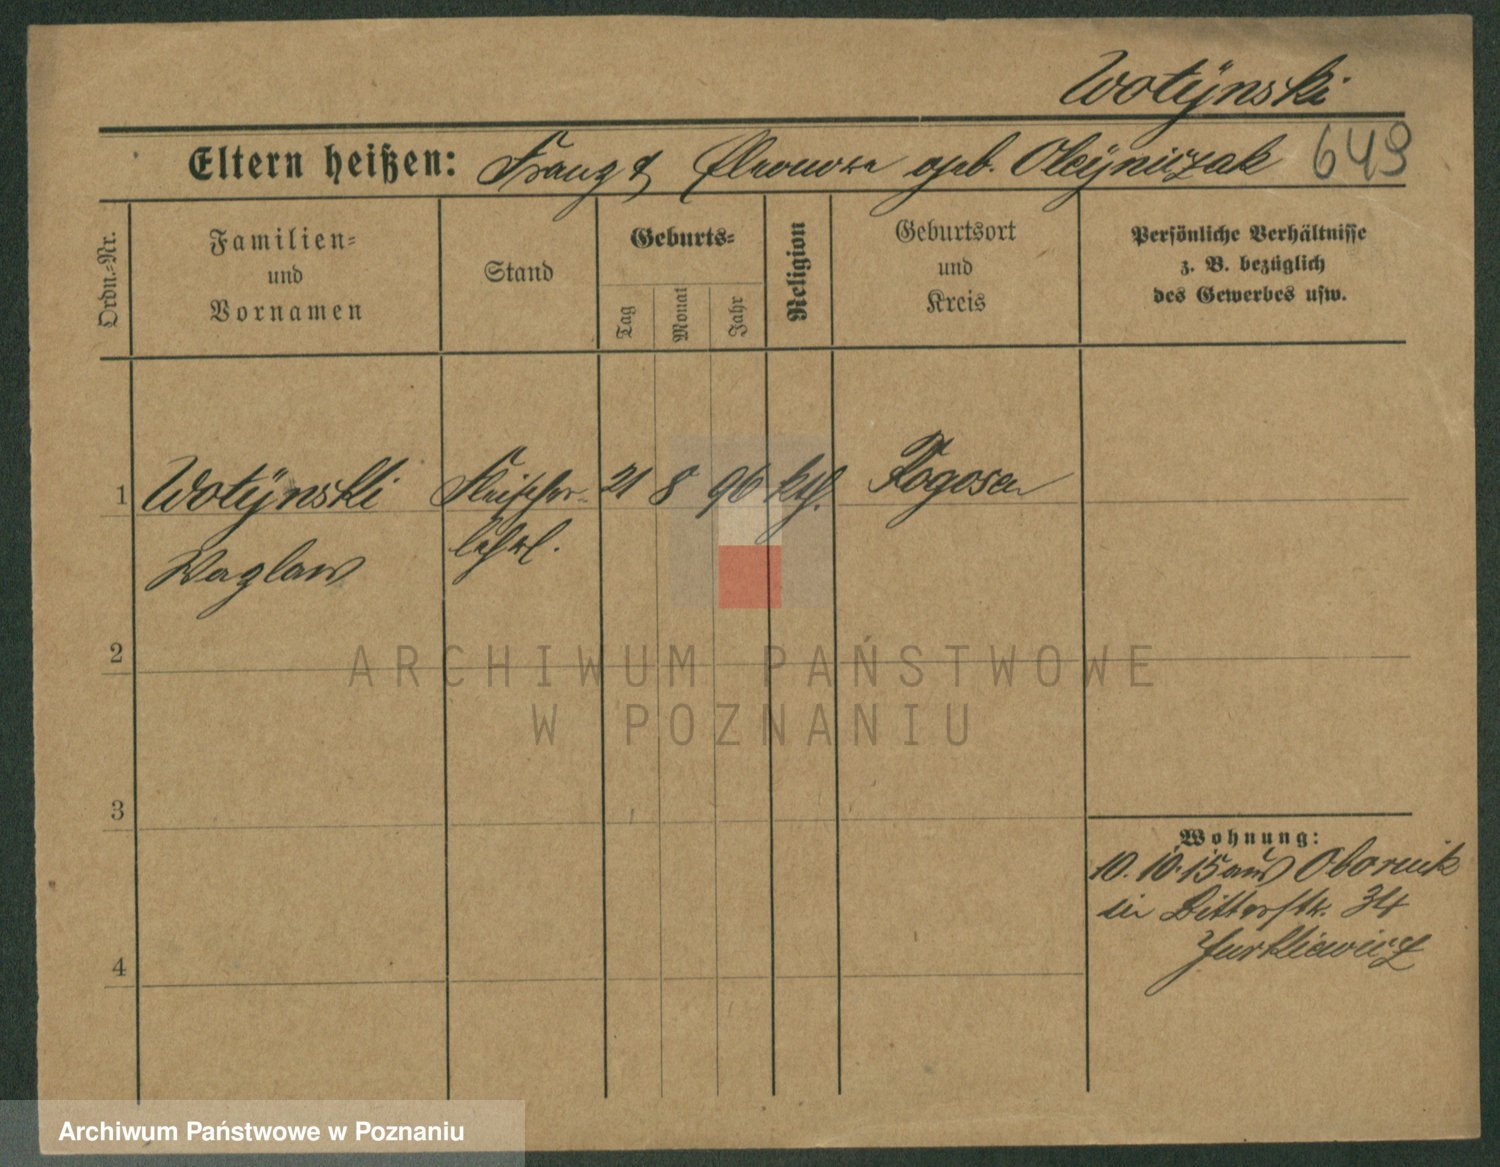 Wotÿnski
Eltern heißen: Franz & Eleonore geb. Olejniczak 649
Ordn.-Nr.
Familien-
und
Vornamen
Stand
Geburts-
Tag
Monat
Jahr
Religion
Geburtsort
und
Kreis
Persönliche Verhältnisse
z. B. bezüglich
des Gewerbes usw.
1 Wotÿnski Fleischer- 21 8 96 kth. Rogasen
Waglaw lehrl.
2
ARCHIWUM PAŃSTWOWE
W POZNANIU
3
Wohnung:
10. 10. 15 aus Obornik
in Bitterstr. 34
Jurkiewicz
4
Archiwum Państwowe w Poznaniu